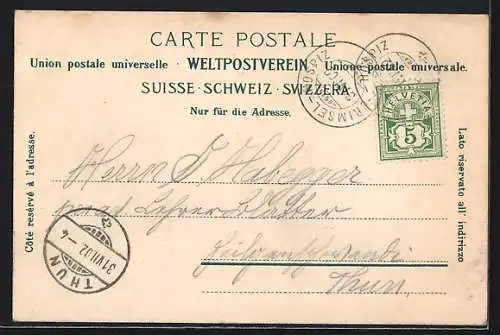 CARTE POSTALE
Union postale universelle · WELTPOSTVEREIN · Unione postale universale.
SUISSE · SCHWEIZ · SVIZZERA
Nur für die Adresse.
GRIMSEL-HOSPIZ
HOSPIZ
HELVETIA
5
Côté réservé à l'adresse.
Lato riservato all' indirizzo
Herrn Habegger
Lehrer
Thun
THUN
31.VII.02 – 4